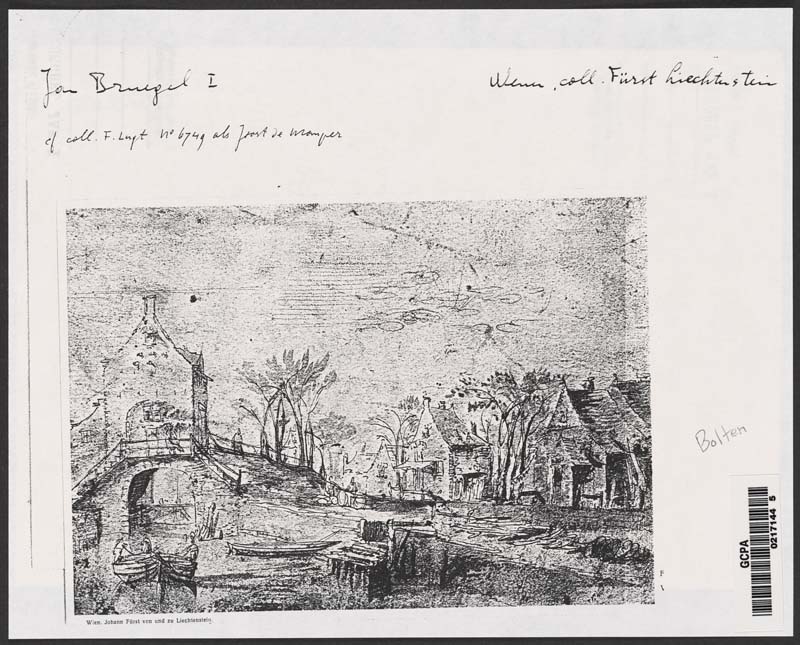 Jan Bruegel I
Wenen, coll. Fürst Liechtenstein
cf coll. F. Lugt No 6749 als Joost de Momper
Bolten
GCPA
0217144 5
Wien, Johann Fürst von und zu Liechtenstein.